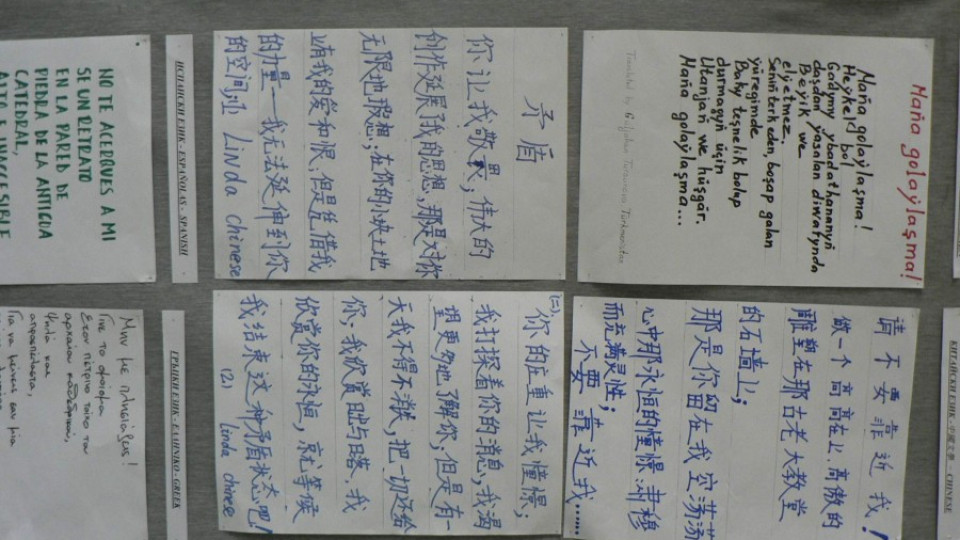 Maña golaýlaşma!
Maña golaýlaşma!
Heýkel bol
Gadymy ybadathananyň
daşdan ýasalan diwarynda
Beýik we
elýetmez.
Seniň terk eden, boşap galan
ýüregimde
Baky teşnelik bolup
durmagyň üçin
Utanjaň we hüşgär.
Maña golaýlaşma...
Turkmenistan
КИТАЙСКИ ЕЗИК - CHINESE
请不要靠近我！
做一个高高在上、高傲的
雕塑在那古老大教堂
的石墙上；
那是你留在我空荡荡
心中那永恒的憧憬
而充满灵性；
不要靠近我……
矛盾
你让我敬畏；伟大的
创作延展了我的思想，那是对你
无限地瑕想；在你的小块土地
上有我的爱和恨；但是凭借我
的力量——我无法延伸到你
的空间 Linda Chinese
(二).
你的庄重让我憧憬；
我打探着你的消息，我渴
望更多地了解你；但是有一
天我不得不 把一切还给
你；我欣赏日出与日落，我
欣赏你的永恒，就等候
我结束这种矛盾状态吧！
(2) Linda Chinese
ИСПАНСКИ ЕЗИК - ESPAÑOL AS - SPANISH
NO TE ACERQUES A MI
SE UN RETRATO
EN LA PARED DE
PIEDRA DE LA ANTIGUA
CATEDRAL,
ALTO E INACCESIBLE
ГРЪЦКИ ЕЗИК - ΕΛΛΗΝΙΚΟ - GREEK
Μην με πλησιάζεις!
Γίνε το
Στον πέτρινο τοίχο του
αρχαίου καθεδρικού,
Ψηλά και
Για να μείνεις σαν μια